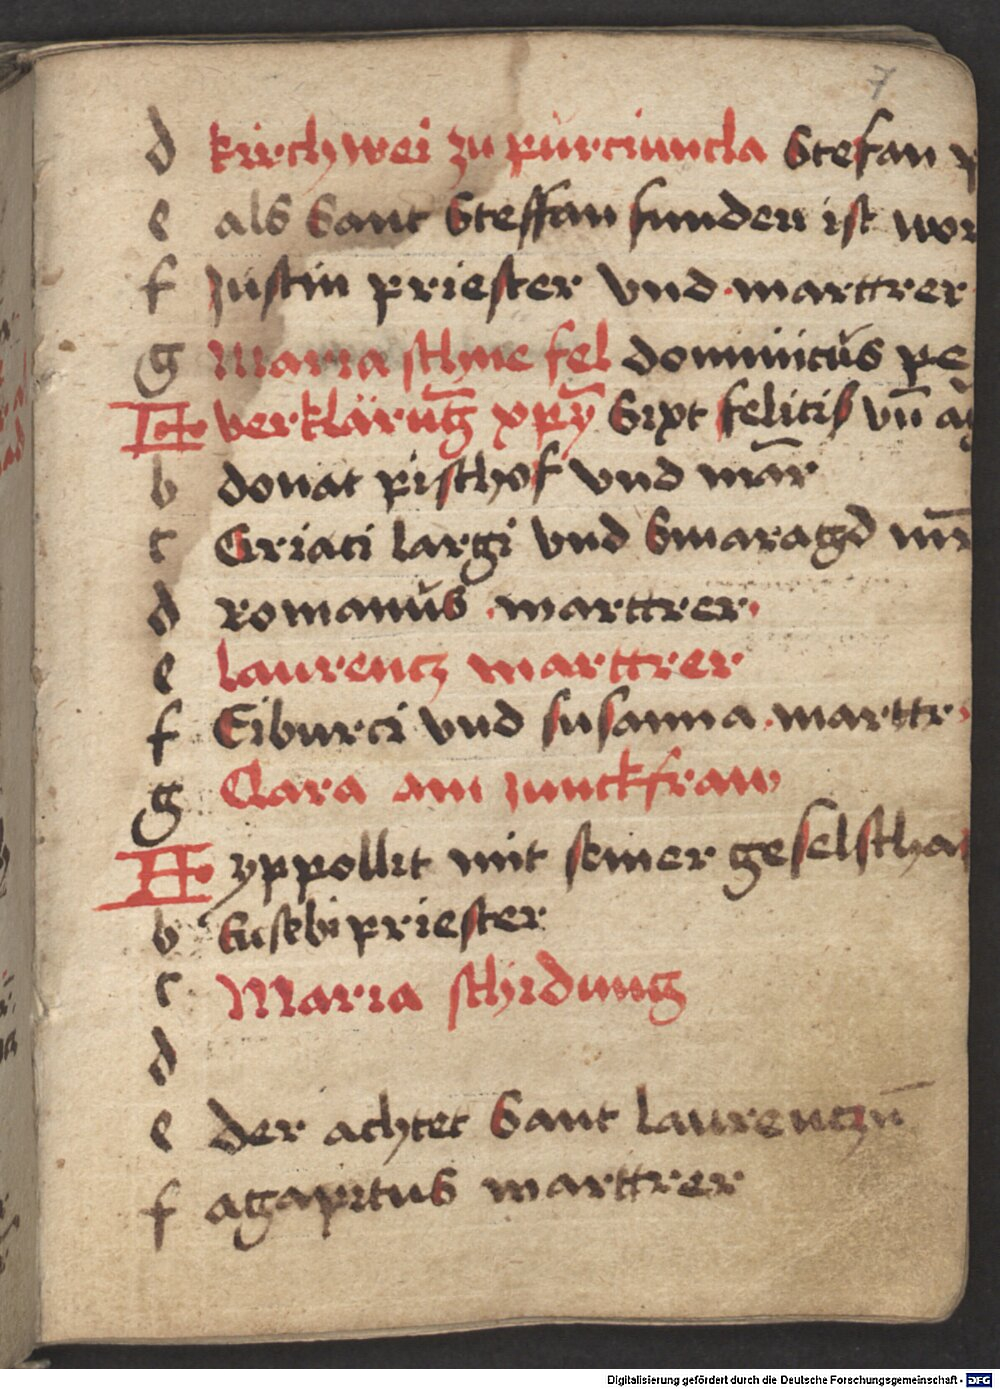 7
d kirchwei zu purciuncla Stefan
e als Sant Steffan funden ist wor
f Justin priester vnd marttrer
g Maria schne fel dominicus pe
A verklärūg xpȳ Sixt felicis vn̄ ag
b donat pischof vnd mār
c Ciriaci largi vnd Smaragd mr̄
d romanus marttrer
e laurencz marttrer
f Tiburci vnd susanna marttr
g Clara ain junckfraw
A yppollit mit seiner geselscha
b Eusebi priester
c Maria schidung
d
e der achtet Sant laurenczn̄
f agapitus marttrer
Digitalisierung gefördert durch die Deutsche Forschungsgemeinschaft - DFG